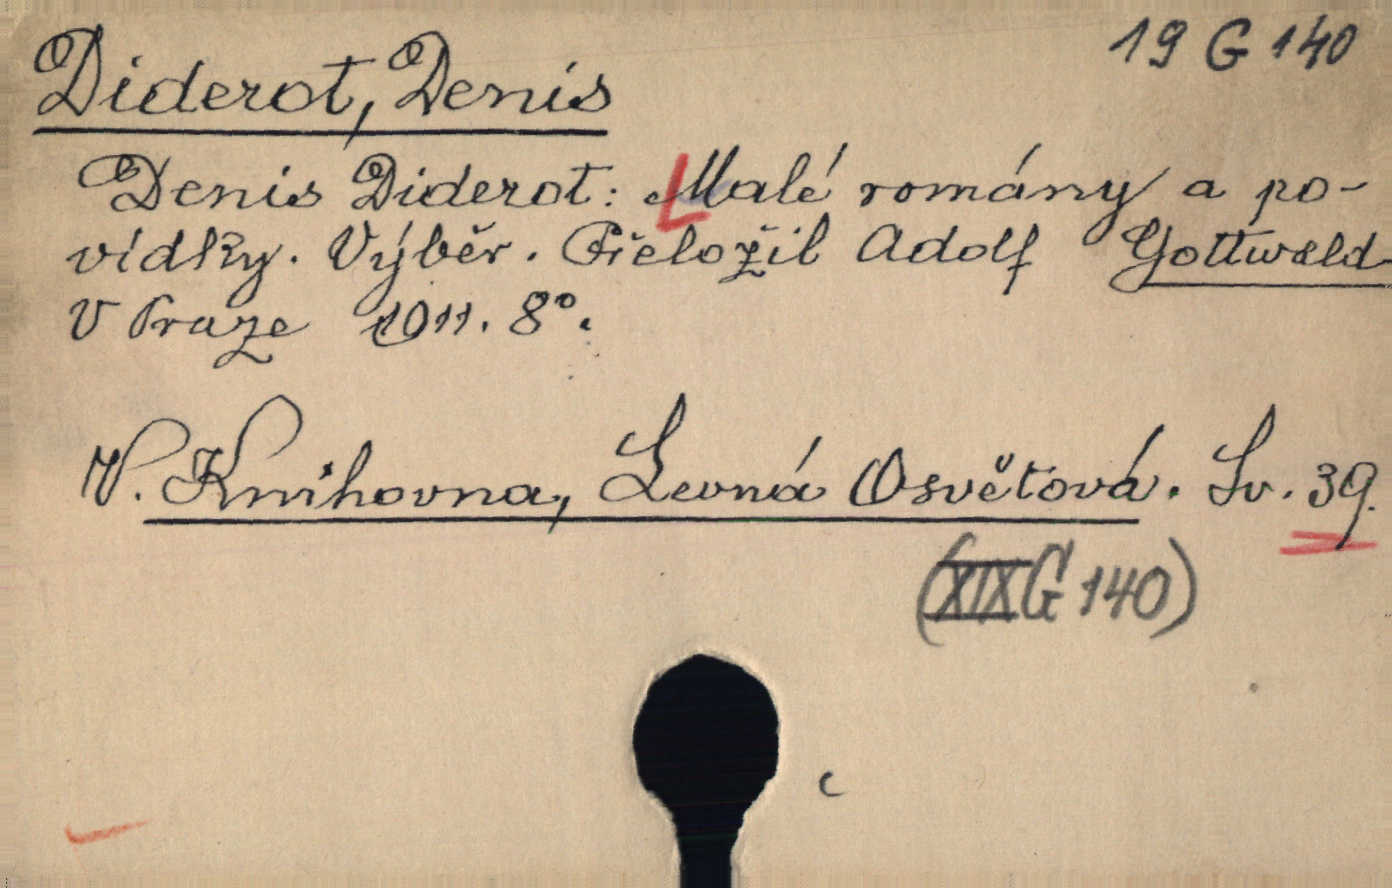 19 G 140
Diderot, Denis
Denis Diderot: Malé romány a po-
vídky. Výběr. Přeložil Adolf Gottwald
V Praze 1911. 8°.
V. Knihovna, Levná Osvětová. Sv. 39.
(XIX G 140)
c